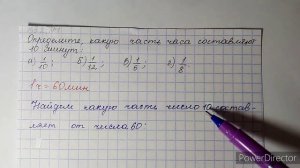 Определите, какую часть часа составляют
10 минут:
а) 1/10; б) 1/12; в) 1/5; г) 1/8.
1 ч = 60 мин
Найдем какую часть число 10 состав-
ляет от числа 60:
PowerDirector